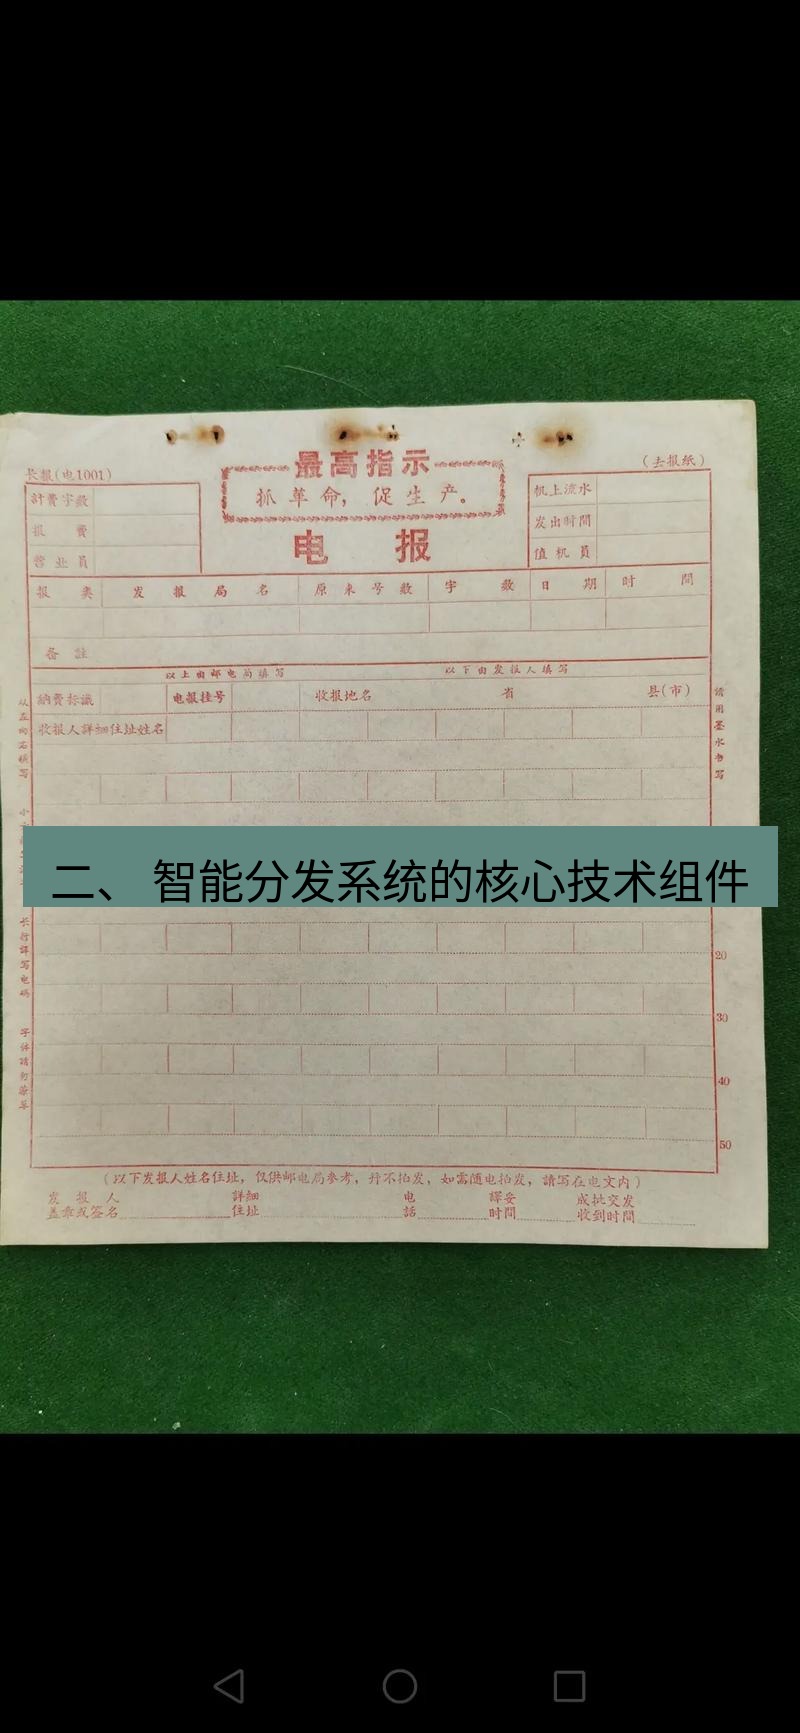 最高指示
长报(电1001)
(去报纸)
抓革命，促生产。
計費字数
机上流水
报費
发出时間
电报
营业員
值机員
报类 发报局名 原来号数 字数 日期 时間
备註
以上由邮电局填写 以下由发报人填写
納費标識 电报挂号 收报地名 省 县(市)
收报人詳細住址姓名
从左向右填写
請用墨水书写
二、 智能分发系统的核心技术组件
长行譯写电碼
字体請勿潦草
20
30
40
50
(以下发报人姓名住址，仅供邮电局参考，并不拍发，如需随电拍发，請写在电文内)
发报人 詳細 电 譯妥 成批交发
盖章或签名 住址 話 时間 收到时間